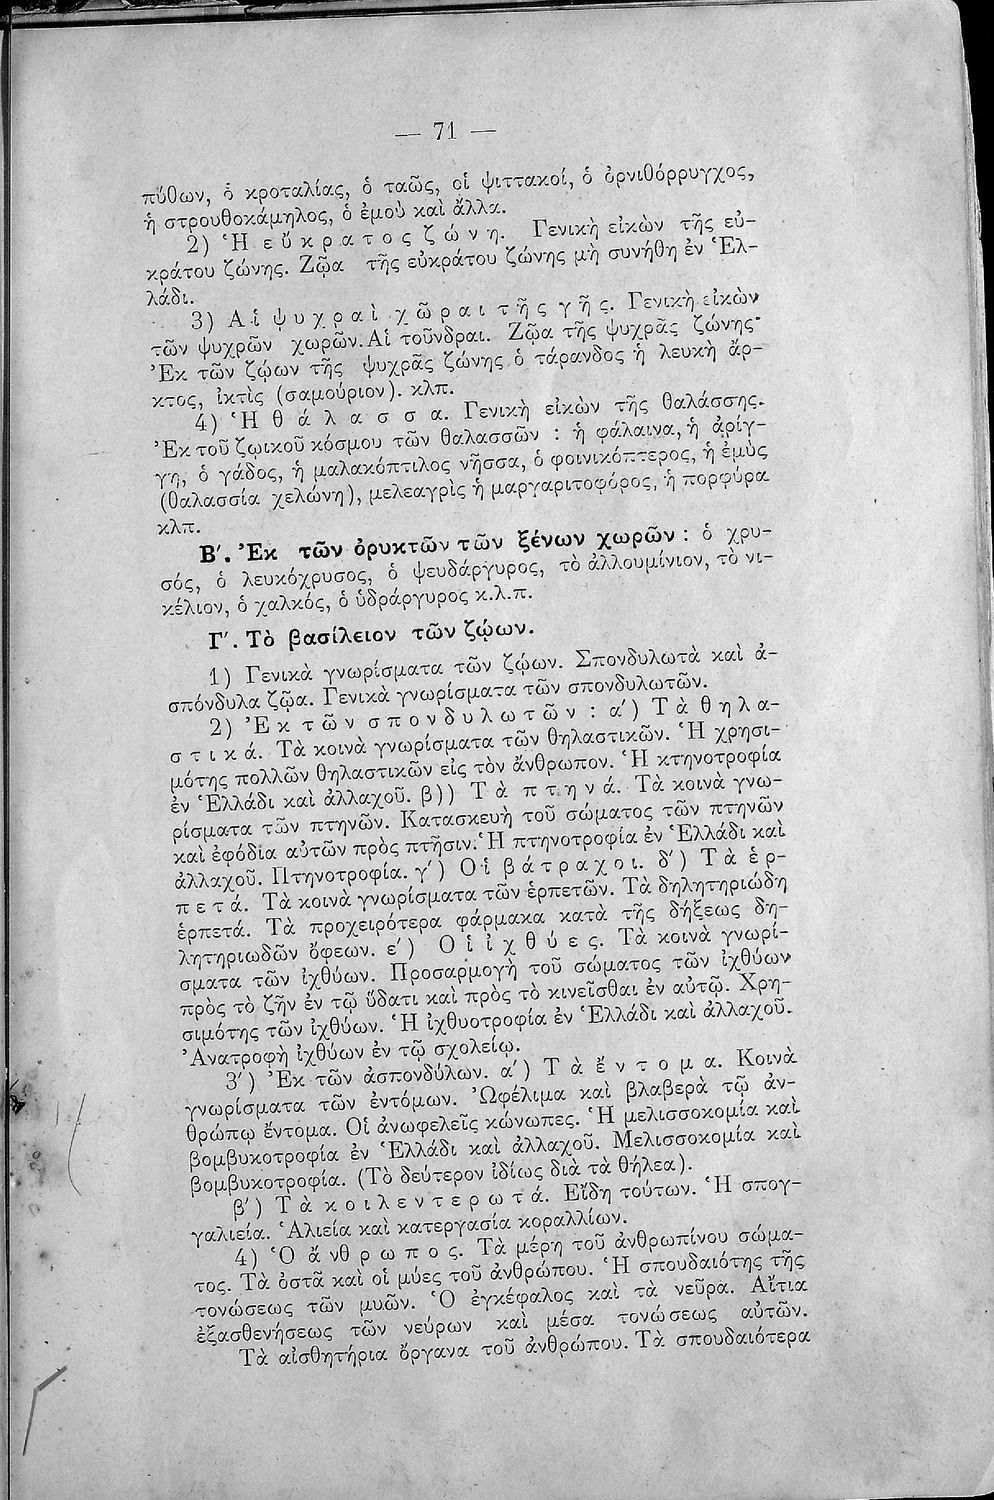 — 71 —
πύθων, ὁ κροταλίας, ὁ ταῶς, οἱ ψιττακοί, ὁ ὀρνιθόρρυγχος,
ἡ στρουθοκάμηλος, ὁ ἐμοὺ καὶ ἄλλα.
2) Ἡ εὔκρατος ζώνη. Γενικὴ εἰκὼν τῆς εὐ-
κράτου ζώνης. Ζῷα τῆς εὐκράτου ζώνης μὴ συνήθη ἐν Ἑλ-
λάδι.
3) Αἱ ψυχραὶ χῶραι τῆς γῆς. Γενικὴ εἰκὼν
τῶν ψυχρῶν χωρῶν. Αἱ τοῦνδραι. Ζῷα τῆς ψυχρᾶς ζώνης·
Ἐκ τῶν ζῴων τῆς ψυχρᾶς ζώνης ὁ τάρανδος ἡ λευκὴ ἄρ-
κτος, ἰκτὶς (σαμούριον). κλπ.
4) Ἡ θάλασσα. Γενικὴ εἰκὼν τῆς θαλάσσης.
Ἐκ τοῦ ζῳικοῦ κόσμου τῶν θαλασσῶν : ἡ φάλαινα, ἡ ἀρίγ-
γη, ὁ γάδος, ἡ μαλακόπτιλος νῆσσα, ὁ φοινικόπτερος, ἡ ἐμὺς
(θαλασσία χελώνη), μελεαγρὶς ἡ μαργαριτοφόρος, ἡ πορφύρα
κλπ.
Β'. Ἐκ τῶν ὀρυκτῶν τῶν ξένων χωρῶν : ὁ χρυ-
σός, ὁ λευκόχρυσος, ὁ ψευδάργυρος, τὸ ἀλλουμίνιον, τὸ νι-
κέλιον, ὁ χαλκός, ὁ ὑδράργυρος κ.λ.π.
Γ'. Τὸ βασίλειον τῶν ζῴων.
1) Γενικὰ γνωρίσματα τῶν ζῴων. Σπονδυλωτὰ καὶ ἀ-
σπόνδυλα ζῷα. Γενικὰ γνωρίσματα τῶν σπονδυλωτῶν.
2) Ἐκ τῶν σπονδυλωτῶν : α') Τὰ θηλα-
στικά. Τὰ κοινὰ γνωρίσματα τῶν θηλαστικῶν. Ἡ χρησι-
μότης πολλῶν θηλαστικῶν εἰς τὸν ἄνθρωπον. Ἡ κτηνοτροφία
ἐν Ἑλλάδι καὶ ἀλλαχοῦ. β)) Τὰ πτηνά. Τὰ κοινὰ γνω-
ρίσματα τῶν πτηνῶν. Κατασκευὴ τοῦ σώματος τῶν πτηνῶν
καὶ ἐφόδια αὐτῶν πρὸς πτῆσιν. Ἡ πτηνοτροφία ἐν Ἑλλάδι καὶ
ἀλλαχοῦ. Πτηνοτροφία. γ') Οἱ βάτραχοι. δ') Τὰ ἑρ-
πετά. Τὰ κοινὰ γνωρίσματα τῶν ἑρπετῶν. Τὰ δηλητηριώδη
ἑρπετά. Τὰ προχειρότερα φάρμακα κατὰ τῆς δήξεως δη-
λητηριωδῶν ὄφεων. ε') Οἱ ἰχθύες. Τὰ κοινὰ γνωρί-
σματα τῶν ἰχθύων. Προσαρμογὴ τοῦ σώματος τῶν ἰχθύων
πρὸς τὸ ζῆν ἐν τῷ ὕδατι καὶ πρὸς τὸ κινεῖσθαι ἐν αὐτῷ. Χρη-
σιμότης τῶν ἰχθύων. Ἡ ἰχθυοτροφία ἐν Ἑλλάδι καὶ ἀλλαχοῦ.
Ἀνατροφὴ ἰχθύων ἐν τῷ σχολείῳ.
3') Ἐκ τῶν ἀσπονδύλων. α') Τὰ ἔντομα. Κοινὰ
γνωρίσματα τῶν ἐντόμων. Ὠφέλιμα καὶ βλαβερὰ τῷ ἀν-
θρώπῳ ἔντομα. Οἱ ἀνωφελεῖς κώνωπες. Ἡ μελισσοκομία καὶ
βομβυκοτροφία ἐν Ἑλλάδι καὶ ἀλλαχοῦ. Μελισσοκομία καὶ
βομβυκοτροφία. (Τὸ δεύτερον ἰδίως διὰ τὰ θήλεα).
β') Τὰ κοιλεντερωτά. Εἴδη τούτων. Ἡ σπογ-
γαλιεία. Ἁλιεία καὶ κατεργασία κοραλλίων.
4) Ὁ ἄνθρωπος. Τὰ μέρη τοῦ ἀνθρωπίνου σώμα-
τος. Τὰ ὀστᾶ καὶ οἱ μύες τοῦ ἀνθρώπου. Ἡ σπουδαιότης τῆς
τονώσεως τῶν μυῶν. Ὁ ἐγκέφαλος καὶ τὰ νεῦρα. Αἴτια
ἐξασθενήσεως τῶν νεύρων καὶ μέσα τονώσεως αὐτῶν.
Τὰ αἰσθητήρια ὄργανα τοῦ ἀνθρώπου. Τὰ σπουδαιότερα